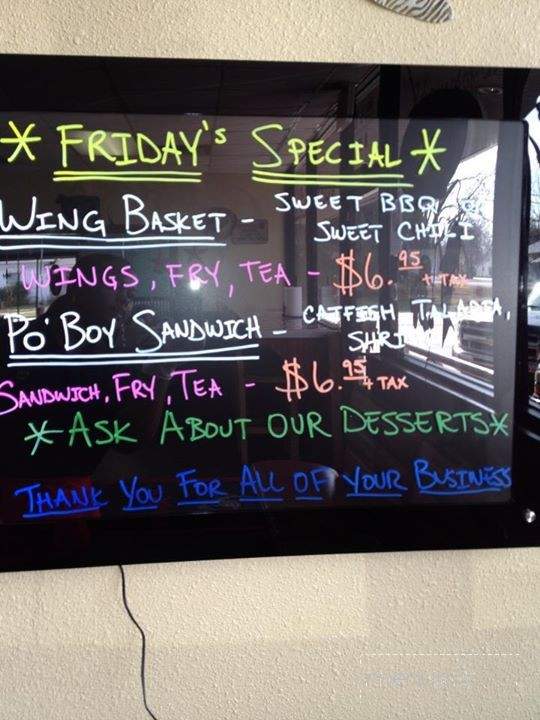 * FRIDAY's SPECIAL *
WING BASKET - SWEET BBQ
SWEET CHILI
WINGS, FRY, TEA - $6.95 + TAX
PO' BOY SANDWICH - CATFISH, TALAPIA,
SANDWICH, FRY, TEA - $6.95 + TAX
*ASK ABOUT OUR DESSERTS*
THANK YOU FOR ALL OF YOUR BUSINESS